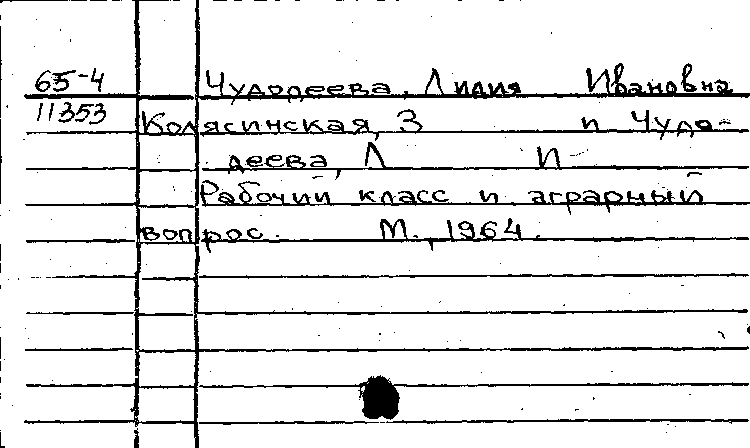 65-4 Чудодеева, Лидия Ивановна
11353 Колясинская, З и Чудо-
деева, Л И
Рабочий класс и аграрный
вопрос. М., 1964.